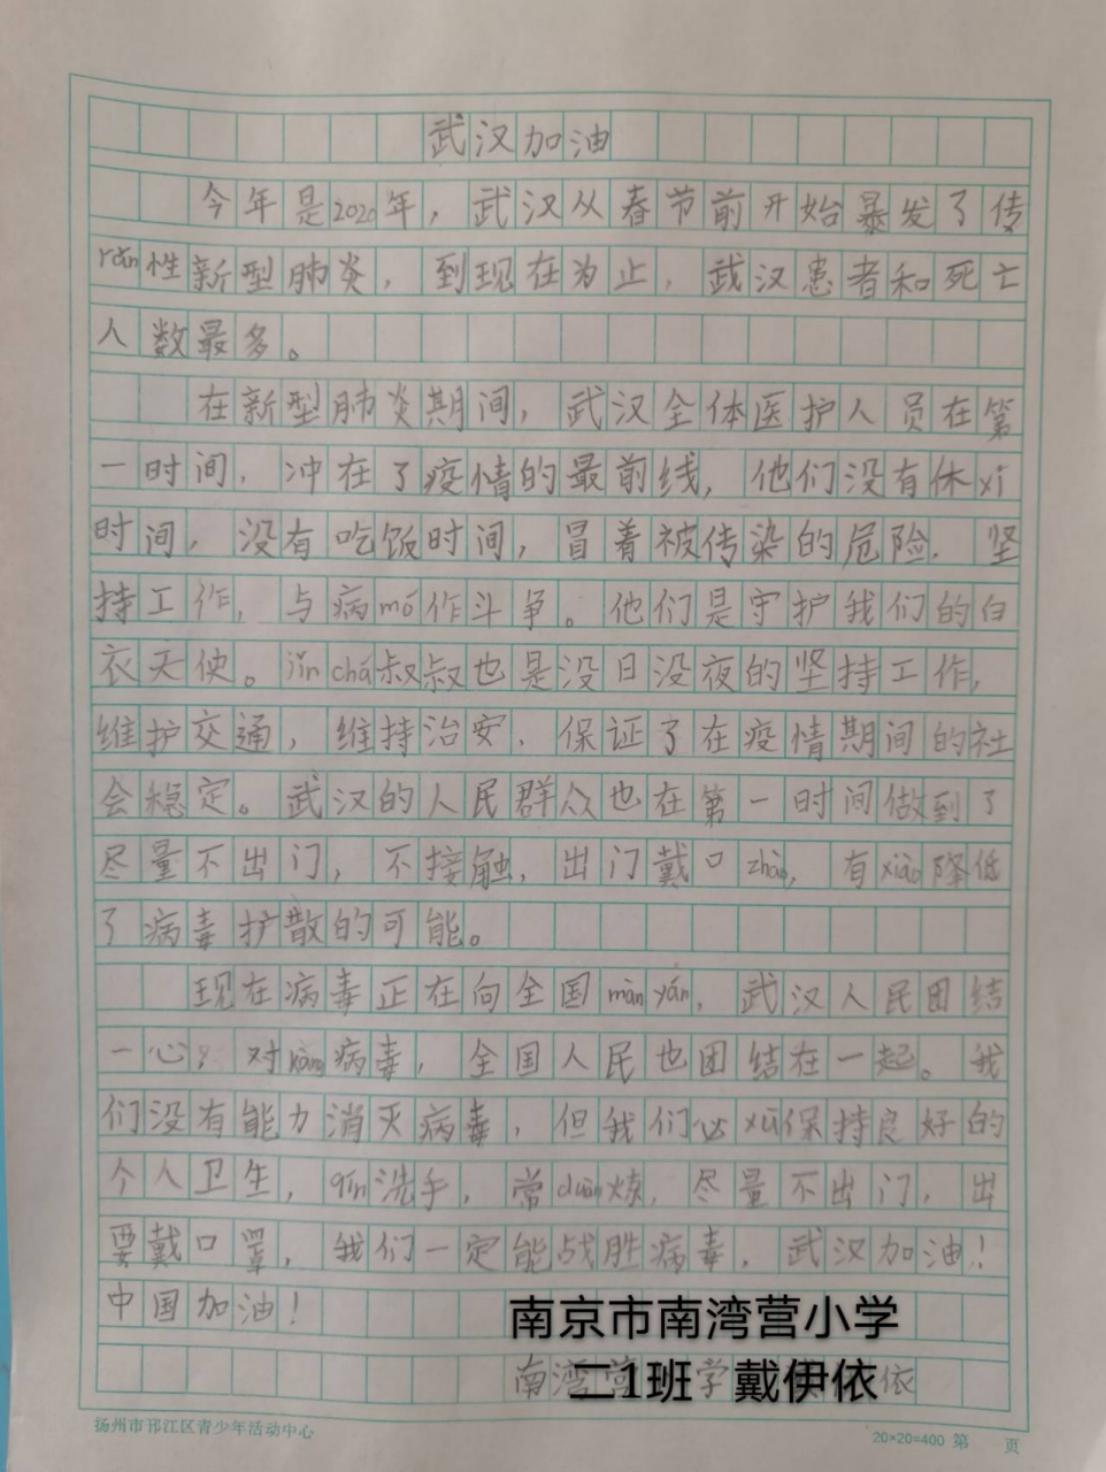 武汉加油
今年是2020年，武汉从春节前开始暴发了传
rǎn性新型肺炎，到现在为止，武汉患者和死亡
人数最多。
在新型肺炎期间，武汉全体医护人员在第
一时间，冲在了疫情的最前线，他们没有休xī
时间，没有吃饭时间，冒着被传染的危险，坚
持工作，与病mó作斗争。他们是守护我们的白
衣天使。jǐn chá叔叔也是没日没夜的坚持工作，
维护交通，维持治安，保证了在疫情期间的社
会稳定。武汉的人民群众也在第一时间做到了
尽量不出门，不接触，出门戴口zhào，有xiào降低
了病毒护散的可能。
现在病毒正在向全国màn yán，武汉人民团结
一心，对kàng病毒，全国人民也团结在一起。我
们没有能力消灭病毒，但我们必xū保持良好的
个人卫生，qín洗手，常duàn炼，尽量不出门，出
要戴口罩，我们一定能战胜病毒，武汉加油！
中国加油！
南京市南湾营小学
南湾营 学 依
二1班 戴伊依
扬州市邗江区青少年活动中心
20×20=400 第 页